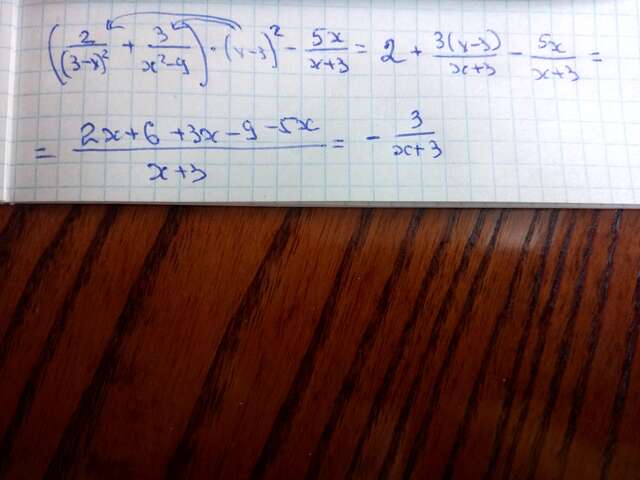 (2/(3-x)² + 3/(x²-9)) · (x-3)² - 5x/(x+3) = 2 + 3(x-3)/(x+3) - 5x/(x+3) =
= (2x+6+3x-9-5x)/(x+3) = - 3/(x+3)